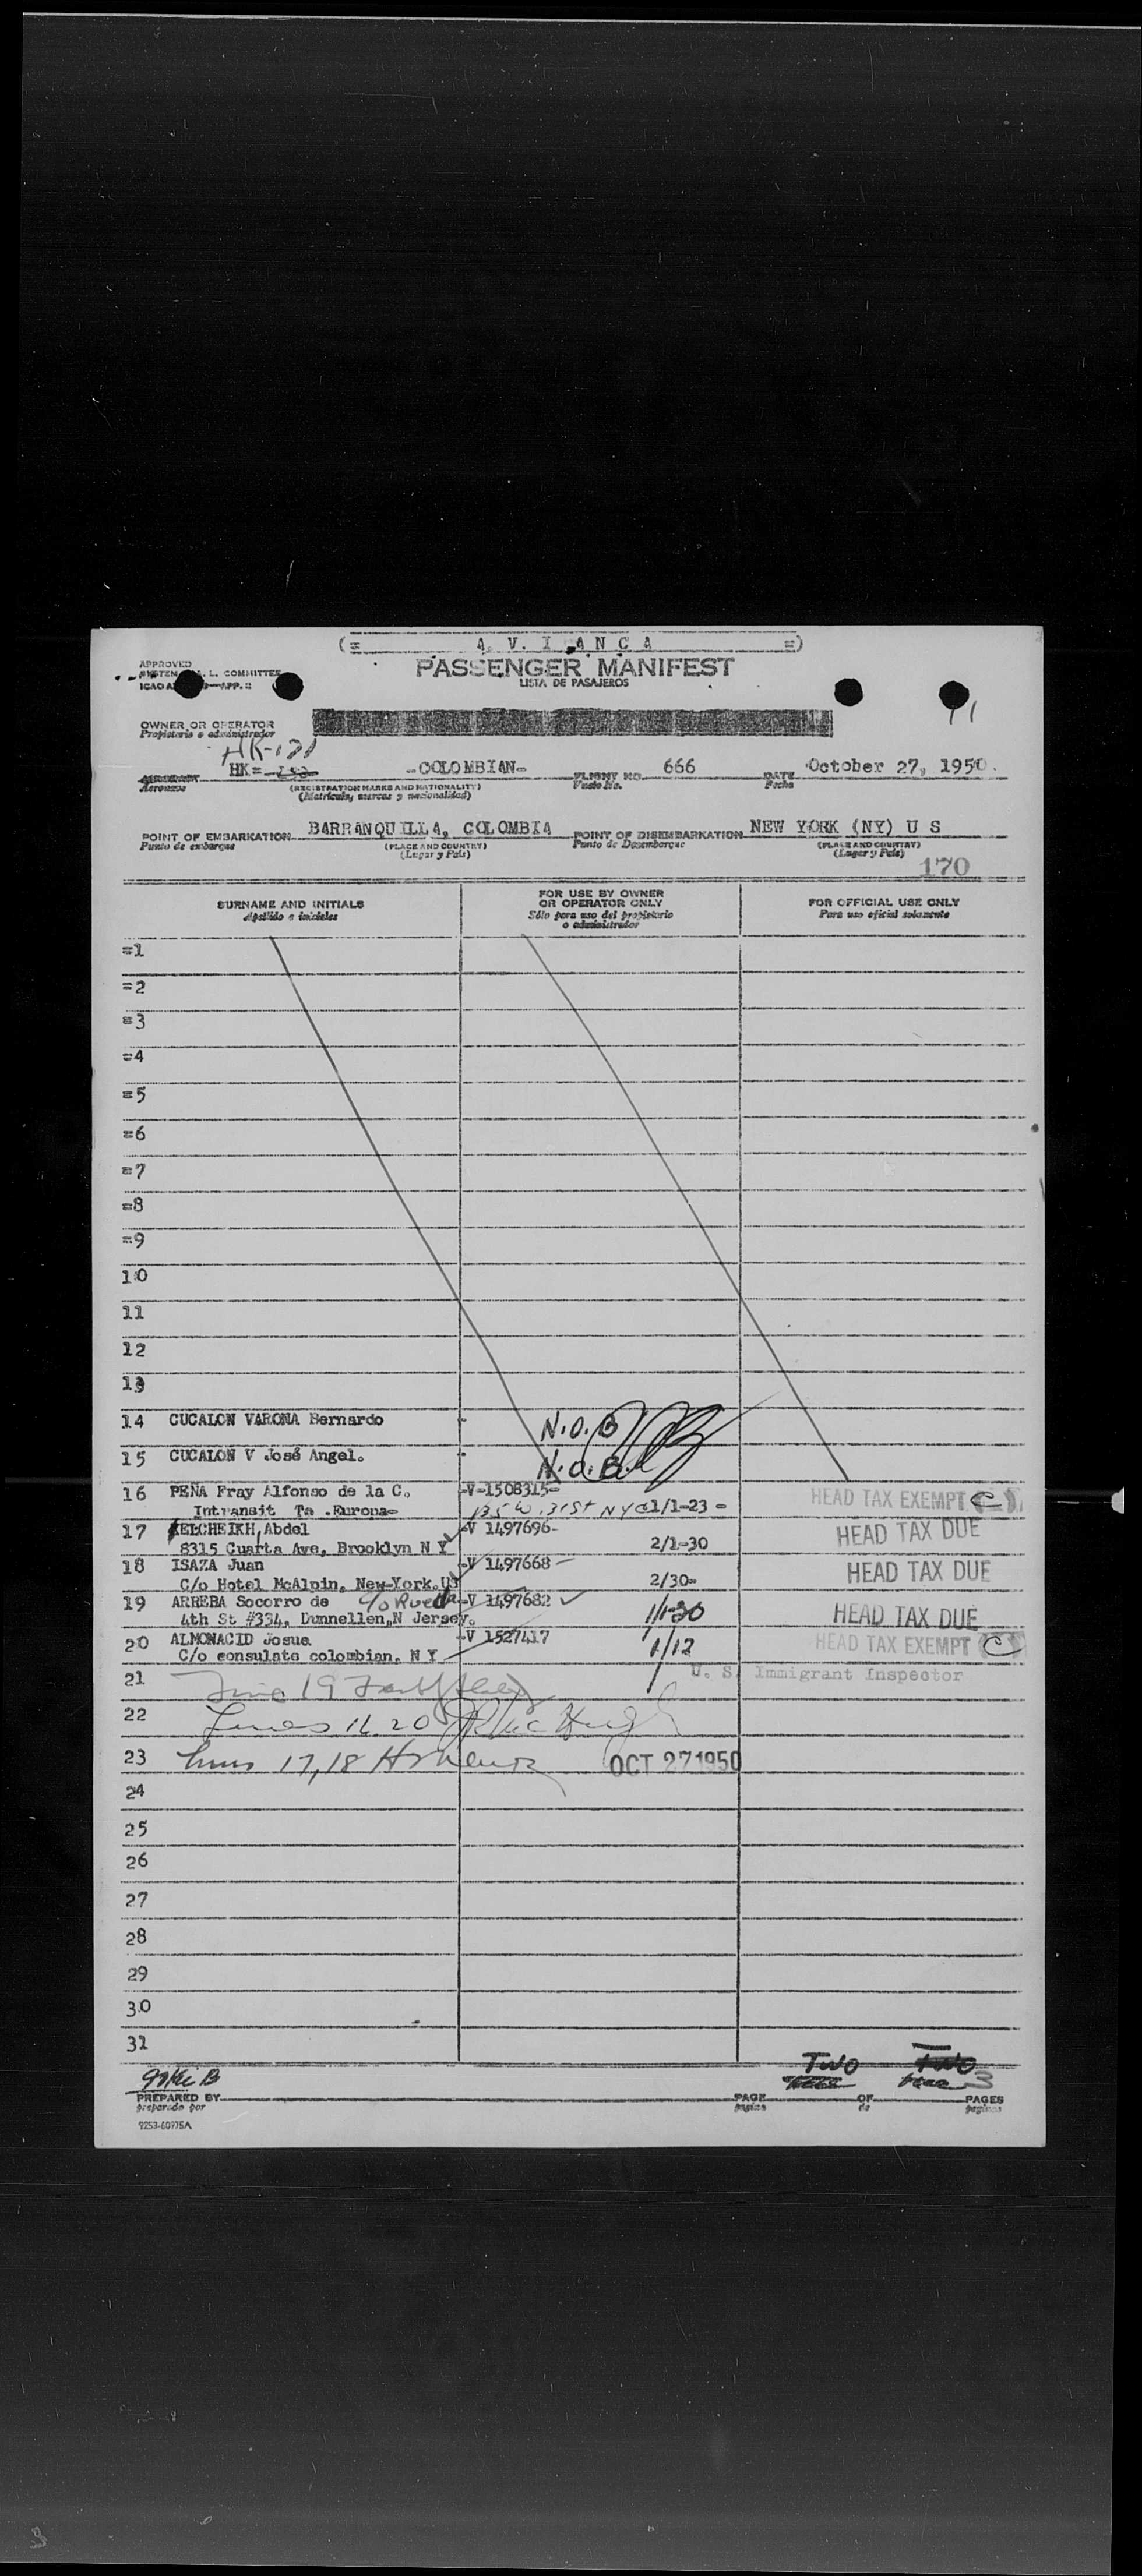 (= A. V. I A N C A =)
PASSENGER MANIFEST
LISTA DE PASAJEROS
APPROVED
L. COMMITTEE
APP. 2
11
OWNER OR OPERATOR
Propietario o administrador
HK=
-COLOMBIAN-
FLIGHT NO. 666
DATE October 27, 1950.
Aeronave
(REGISTRATION MARKS AND NATIONALITY)
Vuelo No.
Fecha
(Matrícula, marcas y nacionalidad)
POINT OF EMBARKATION BARRANQUILLA, COLOMBIA POINT OF DISEMBARKATION NEW YORK (NY) U S
Punto de embarque (PLACE AND COUNTRY) Punto de Desembarque (PLACE AND COUNTRY)
(Lugar y País) (Lugar y País)
170
SURNAME AND INITIALS
Apellido e iniciales
FOR USE BY OWNER
OR OPERATOR ONLY
Sólo para uso del propietario
o administrador
FOR OFFICIAL USE ONLY
Para uso oficial solamente
=1
=2
=3
=4
=5
=6
=7
=8
=9
10
11
12
13
14 CUCALON VARONA Bernardo - N.O.B
15 CUCALON V José Angel. - N.O.B.
16 PEÑA Fray Alfonso de la C. -V-1508315- HEAD TAX EXEMPT C
Intransit To .Europa- 135 W. 31st NYC 1/1-23 -
17 ELCHEIKH, Abdel -V 1497696- HEAD TAX DUE
8315 Cuarta Ave, Brooklyn N Y 2/1-30
18 ISAZA Juan -V 1497668 - HEAD TAX DUE
C/o Hotel McAlpin, New-York.US 2/30-
19 ARREBA Socorro de c/o Rueda -V 1497682 HEAD TAX DUE
4th St #334, Dunnellen,N Jersey. 1/1-30
20 ALMONACID Josue -V 1527417 HEAD TAX EXEMPT C
C/o consulate colombian. N Y 1/12
U. S. Immigrant Inspector
21 Line 19
22 Lines 16.20
23 Lines 17,18 OCT 27 1950
24
25
26
27
28
29
30
31
TWO
PREPARED BY PAGE OF 3 PAGES
preparado por página de páginas
7253-40775A